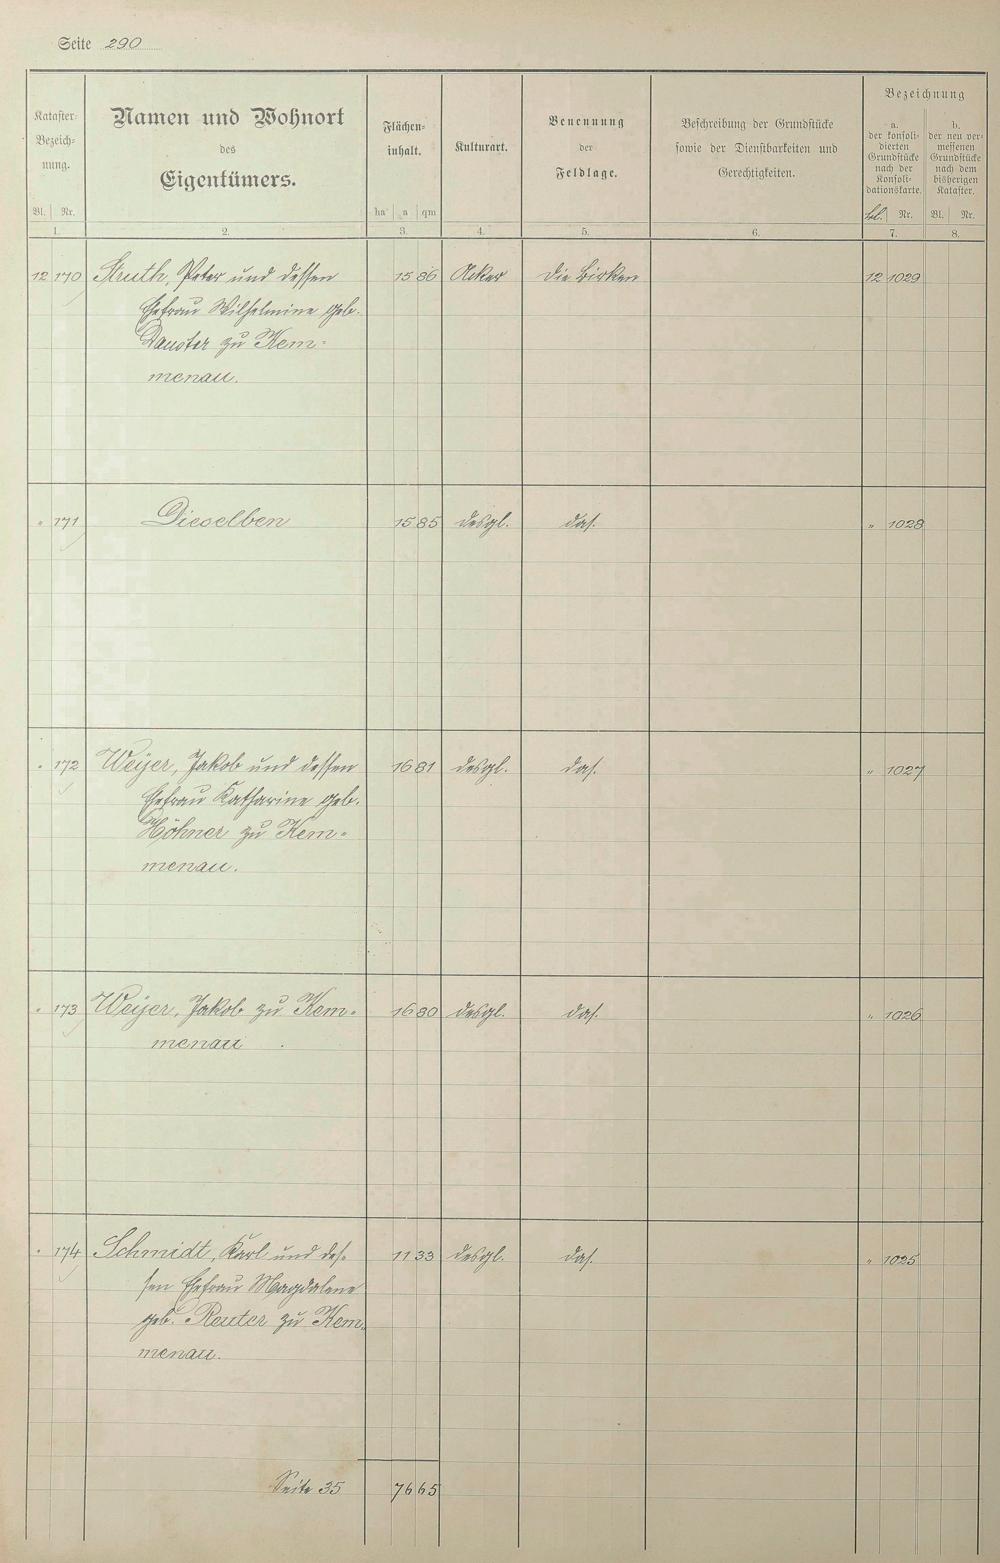 Seite 290
Kataster-
Bezeich-
nung.
Bl. Nr.
1.
Namen und Wohnort
des
Eigentümers.
2.
Flächen-
inhalt.
ha a qm
3.
Kulturart.
4.
Benennung
der
Feldlage.
5.
Beschreibung der Grundstücke
sowie der Dienstbarkeiten und
Gerechtigkeiten.
6.
Bezeichnung
a.
der konsoli-
dierten
Grundstücke
nach der
Konsoli-
dationskarte.
bl. Nr.
7.
b.
der neu ver-
messenen
Grundstücke
nach dem
bisherigen
Kataster.
Bl. Nr.
8.
12 170 Struth, Peter und dessen 15 86 Acker die Birken 12 1029
Ehefrau Wilhelmine geb.
Dauster zu Kem-
menau.
" 171 Dieselben 15 85 desgl. das. " 1028
" 172 Weijer, Jakob und dessen 16 81 desgl. das. " 1027
Ehefrau Katharine geb.
Höhner zu Kem-
menau.
" 173 Weijer, Jakob zu Kem- 16 80 desgl. das. " 1026
menau.
" 174 Schmidt, Karl und des- 11 33 desgl. das. " 1025
sen Ehefrau Magdalene
geb. Reuter zu Kem-
menau.
Seite 35 76 65